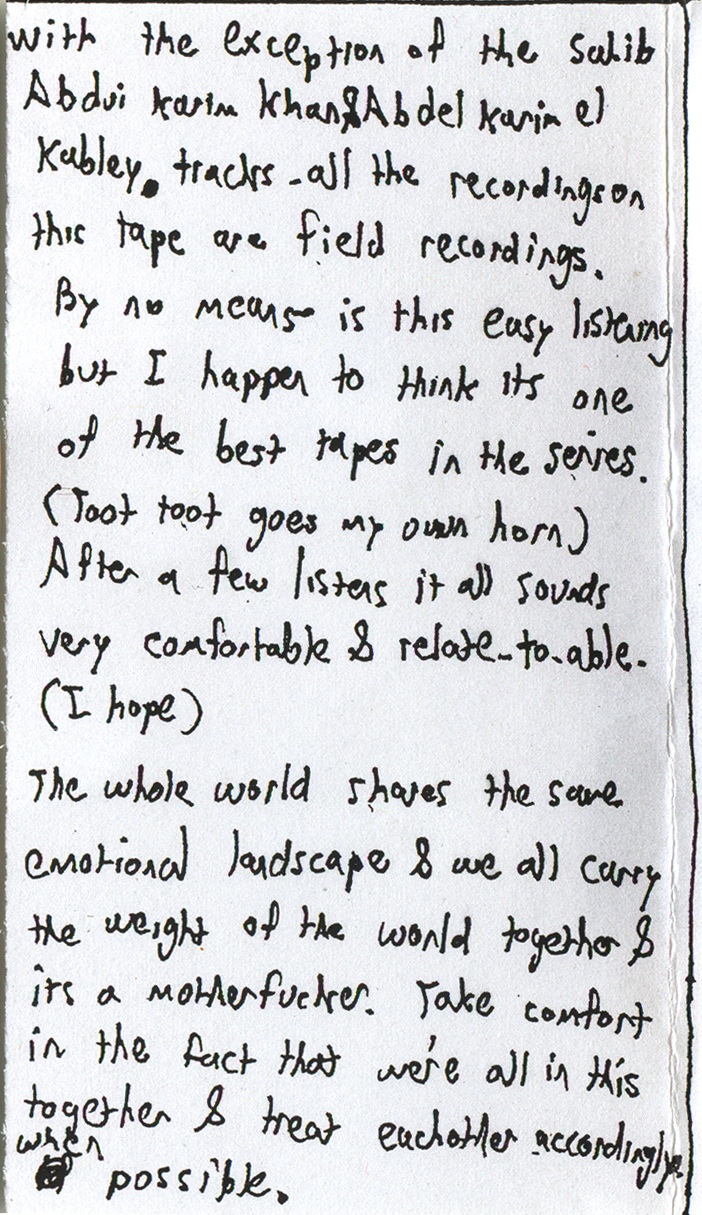 with the exception of the Sahib
Abdui Karim Khan&Abdel Karim el
Kabley. tracks - all the recordings on
this tape are field recordings.
By no means is this easy listening
but I happen to think its one
of the best tapes in the series.
(Toot toot goes my own horn)
After a few listens it all sounds
very comfortable & relate-to-able.
(I hope)
The whole world shares the same
emotional landscape & we all carry
the weight of the world together &
its a motherfucker. Take comfort
in the fact that we're all in this
together & treat eachother accordingly
when
possible.